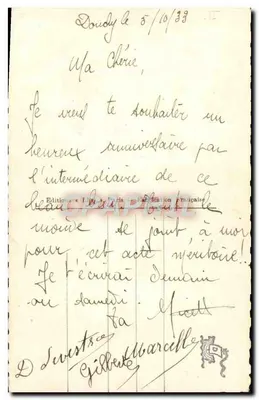 Douchy le 5/10/33
Ma Chérie,
Je veux te souhaiter un
heureux anniversaire par
l'intermédiaire de ce
beau
monde se joint à moi
pour cet acte méritoire!!
Je t'écrirai demain
ou samedi.
Ta
Gilberte Marcelle